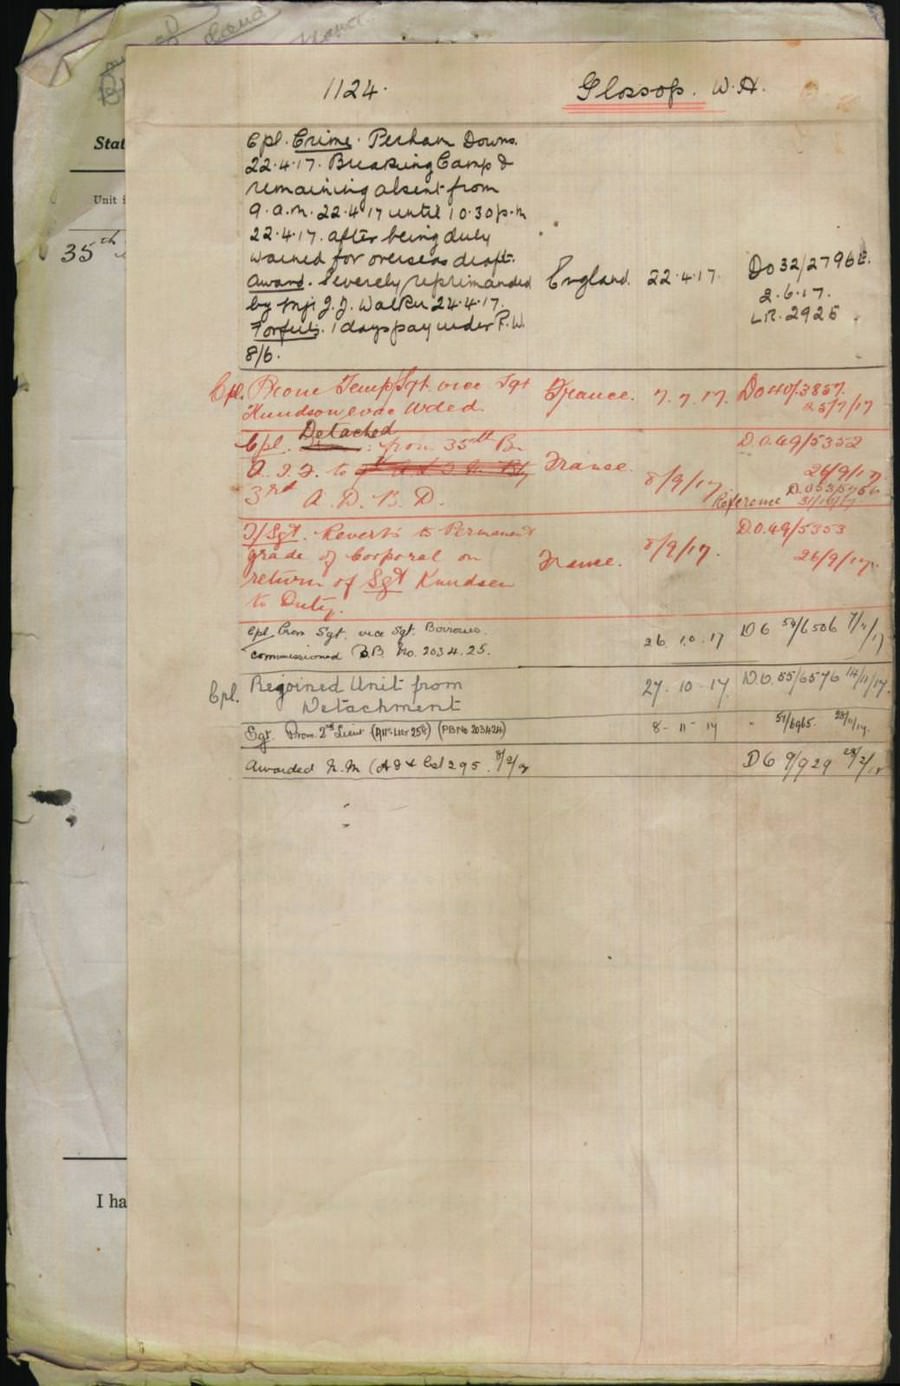 Stat
Unit i
35th
I ha
1124. Glossop. W.H.
Cpl. Crime. Perham Downs.
22.4.17. Breaking Camp &
remaining absent from
9.a.m. 22.4.17 until 10.30p.m
22.4.17. after being duly
warned for overseas draft.
Award. Severely reprimanded England. 22.4.17. Do 32/2796
by Mjr J.J. Walker 24.4.17. 2.6.17.
Forfeits. 1 days pay under R.W. LR.2925
8/6.
Cpl. Prom Temp/Sgt vice Sgt France. 7.7.17. Do 40/3857
Knudson evac Wded. 25/7/17
Cpl. Detached from 35th Bn D.O.49/5352
A.I.F. to France. 8/9/17 26/9/17
3rd A.D.B.D. Reference
T/Sgt. Reverts to Permanent D.O.49/5353
grade of Corporal on France. 8/9/17. 26/9/17.
return of Sgt Knudsen
to Duty.
Cpl Prom Sgt. vice Sgt. Borrows. 26.10.17 DO 54/6506 7/11/17
commissioned B.B. No. 2034.25.
Cpl. Rejoined Unit from 27-10-17 D.O.55/6576 14/11/17.
Detachment
Sgt. Prom. 2nd Lieut 8-11-17 " 57/6965
Awarded M.M DO 9/929 28/2/18